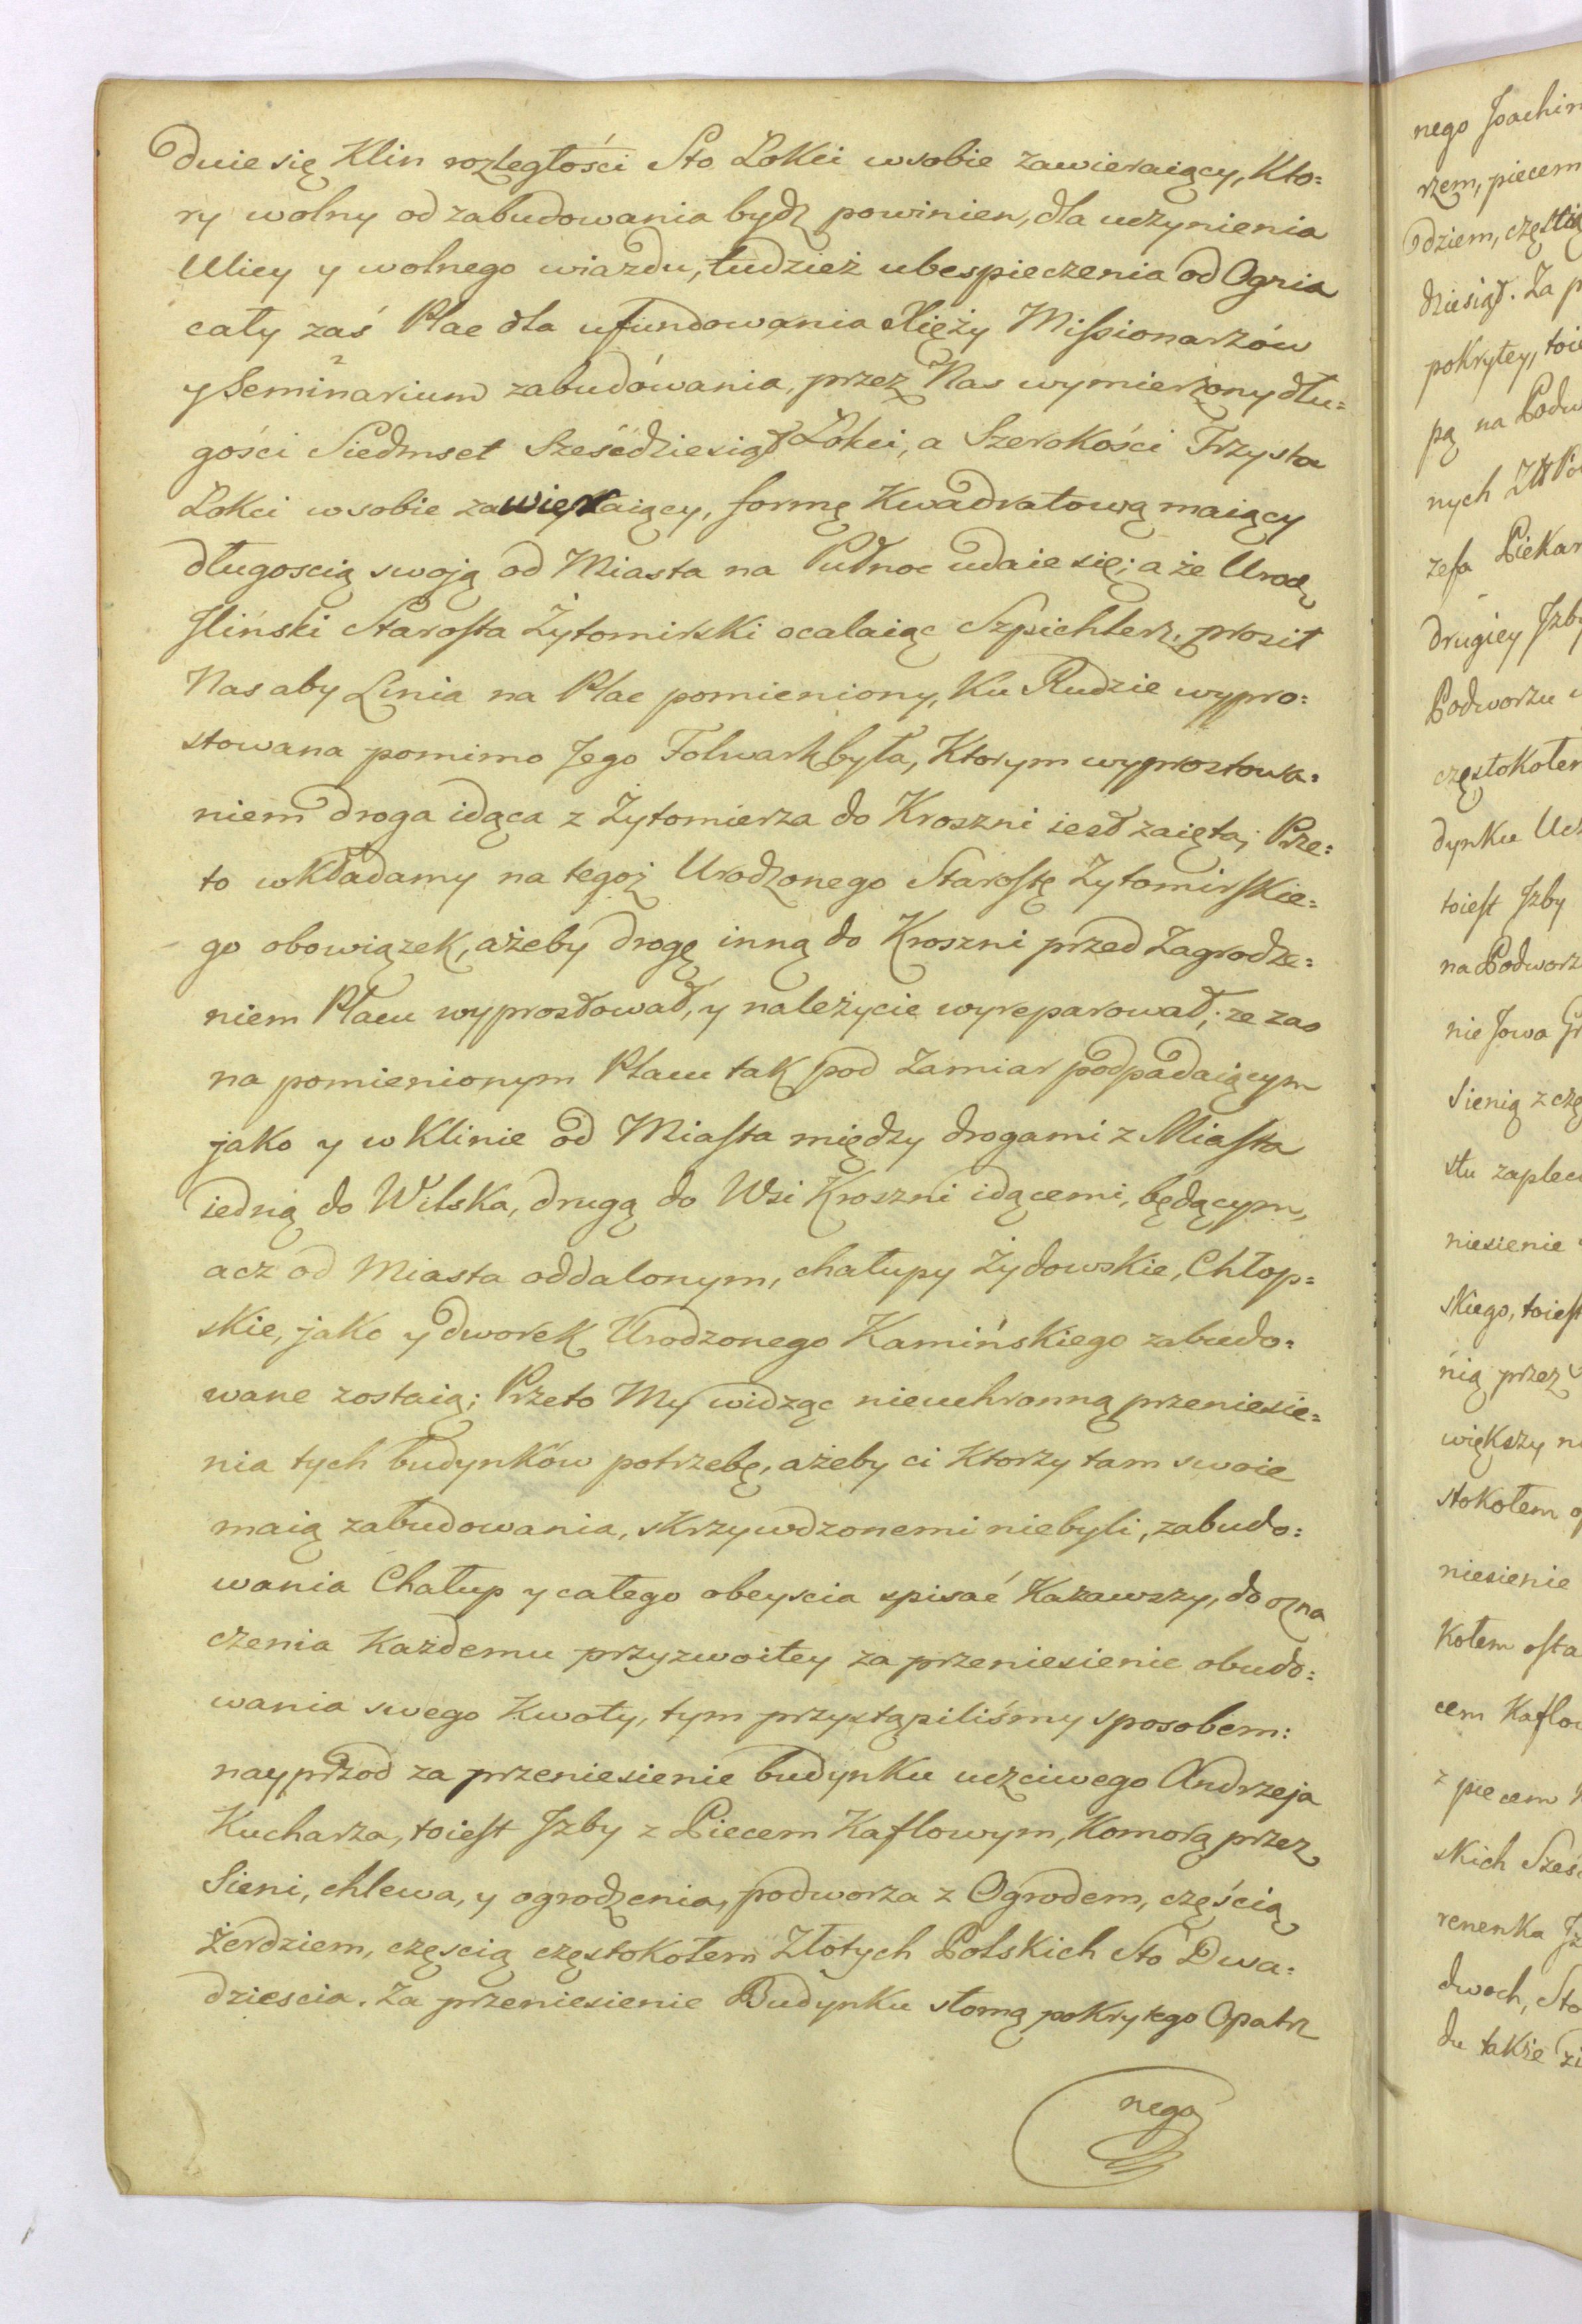 duie się Klin rozległości Sto Łokci w sobie zawieraiący, Kto=
ry wolny od zabudowania bydz powinien, dla uczynienia
Ulicy y wolnego wiazdu, tudzież ubespieczenia od Ognia
cały zaś Plac dla ufundowania Xięży Missionarzów
y Seminarium zabudówania, przez Nas wymierzony dłu=
gości Siedmset Sześćdziesiąt Łokci, a Szerokości Trzysta
Łokci w sobie zawieraiący, formę Kwadratową maiący
długoscią swoją od Miasta na Pułnoc udaie się; a że Urodz
Jliński Starosta Żytomirski ocalaiąc Szpichlerz, prosił
Nas aby Linia na Plac pomieniony, Ku Rudzie wypro=
stowana pomimo Jego Folwark była, Ktorym wyprostowa=
niem droga idąca z Żytomierza do Kroszni iest zaięta; Prze=
to wkładamy na tegoż Urodzonego Starostę Żytomirskie=
go obowiązek, ażeby drogę inną do Kroszni przed Zagrodze=
niem Placu wyprostował, y należycie wyreparował; że zas
na pomienionym Placu tak pod Zamiar podpadaiącym
jako y w Klinie od Miasta między drogami z Miasta
iedną do Wilska, drugą do Wsi Kroszni idącemi, będącym,
acz od Miasta oddalonym, chałupy Żydowskie, Chłop=
skie, jako y dworek Urodzonego Kamińskiego zabudo=
wane zostaią; Przeto My widząc nieuchronną przeniesie=
nia tych budynków potrzebę, ażeby ci Ktorzy tam swoie
maią zabudowania, skrzywdzonemi niebyli, zabudo=
wania Chałup y całego obeyscia spisać Kazawszy, do ozna
czenia Każdemu przyzwoitey za przeniesienie obudo=
wania swego Kwoty, tym przystąpiliśmy sposobem:
nayprzod za przeniesienie budynku uczciwego Andrzeja
Kucharza, toiest Jzby z Piecem Kaflowym, Komorą przez
Sieni, chlewa, y ogrodzenia, podworza z Ogrodem, częścią
żerdziem, częscią częstokołem Złotych Polskich Sto Dwa=
dziescia. Za przeniesienie Budynku słomą pokrytego Opatrz
nego
nego Joachim
rzem, piecem
dziem, częstią
dziesiąt. Za p
pokrytey, toie
pą na Podw
nych Złt Po
zefa Piekar
drugiey Jzby
Podworzu
częstokołem
dynku Ucz
toiest Jzby
na Podworz
nie Jowa Gr
Sienią z czę
stu zaplec
niesienie
skiego, toiest
nią przez
większy n
stokołem o
niesienie
Kołem osta
cem Kaflow
z piecem K
skich Sześć
renenka Jz
dwoch, Sto
du także zi